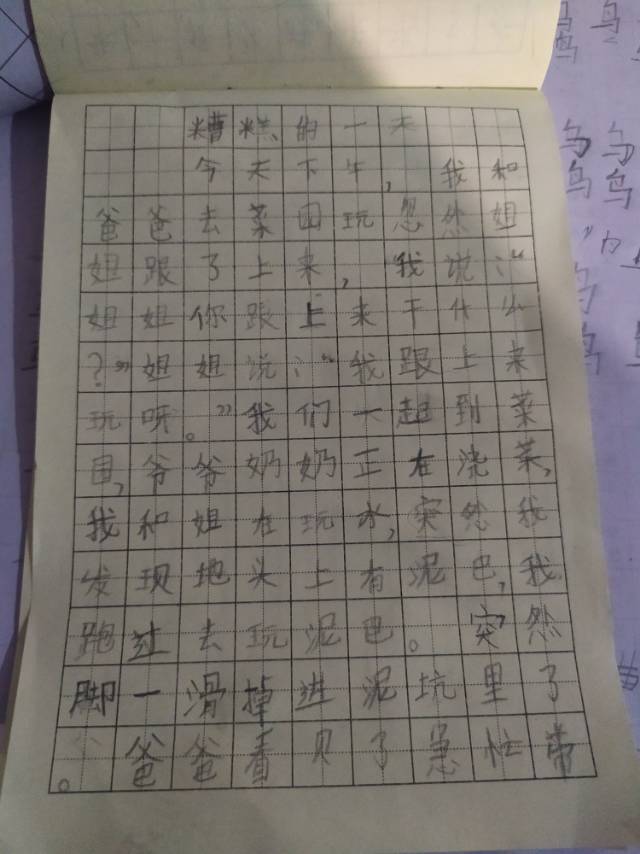 糟糕的一天
今天下午，我和
爸爸去菜园玩忽然姐
姐跟了上来，我说：“
姐姐你跟上来干什么
？”姐姐说：“我跟上来
玩呀。”我们一起到菜
园，爷爷奶奶正在浇菜，
我和姐在玩水，突然我
发现地头上有泥巴，我
跑过去玩泥巴。突然
脚一滑掉进泥坑里了
。爸爸看见了急忙带